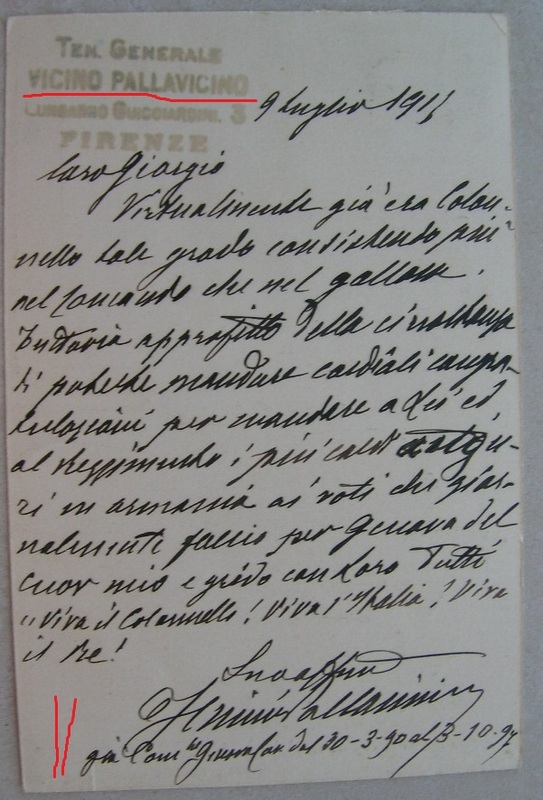 TEN. GENERALE
VICINO PALLAVICINO
LUNGARNO GUICCIARDINI. 3
FIRENZE
9 Luglio 1915
Caro Giorgio
Virtualmente già era Colon-
nello tale grado consistendo più
nel comando che nel gallone.
Tuttavia approfitto della circostanza
di poterle mandare cordiali congra-
tulazioni per mandare a Lei ed
al Reggimento i più caldi augu-
ri in armonia ai voti che gior-
nalmente faccio per Genova del
cuor mio e grido con loro Tutti
"Viva il Colonnello! Viva l'Italia! Viva
il Re!
Suo affmo
Pallavicino
già Com. te Genova Cav. dal 30-3-90 al 3-10-97